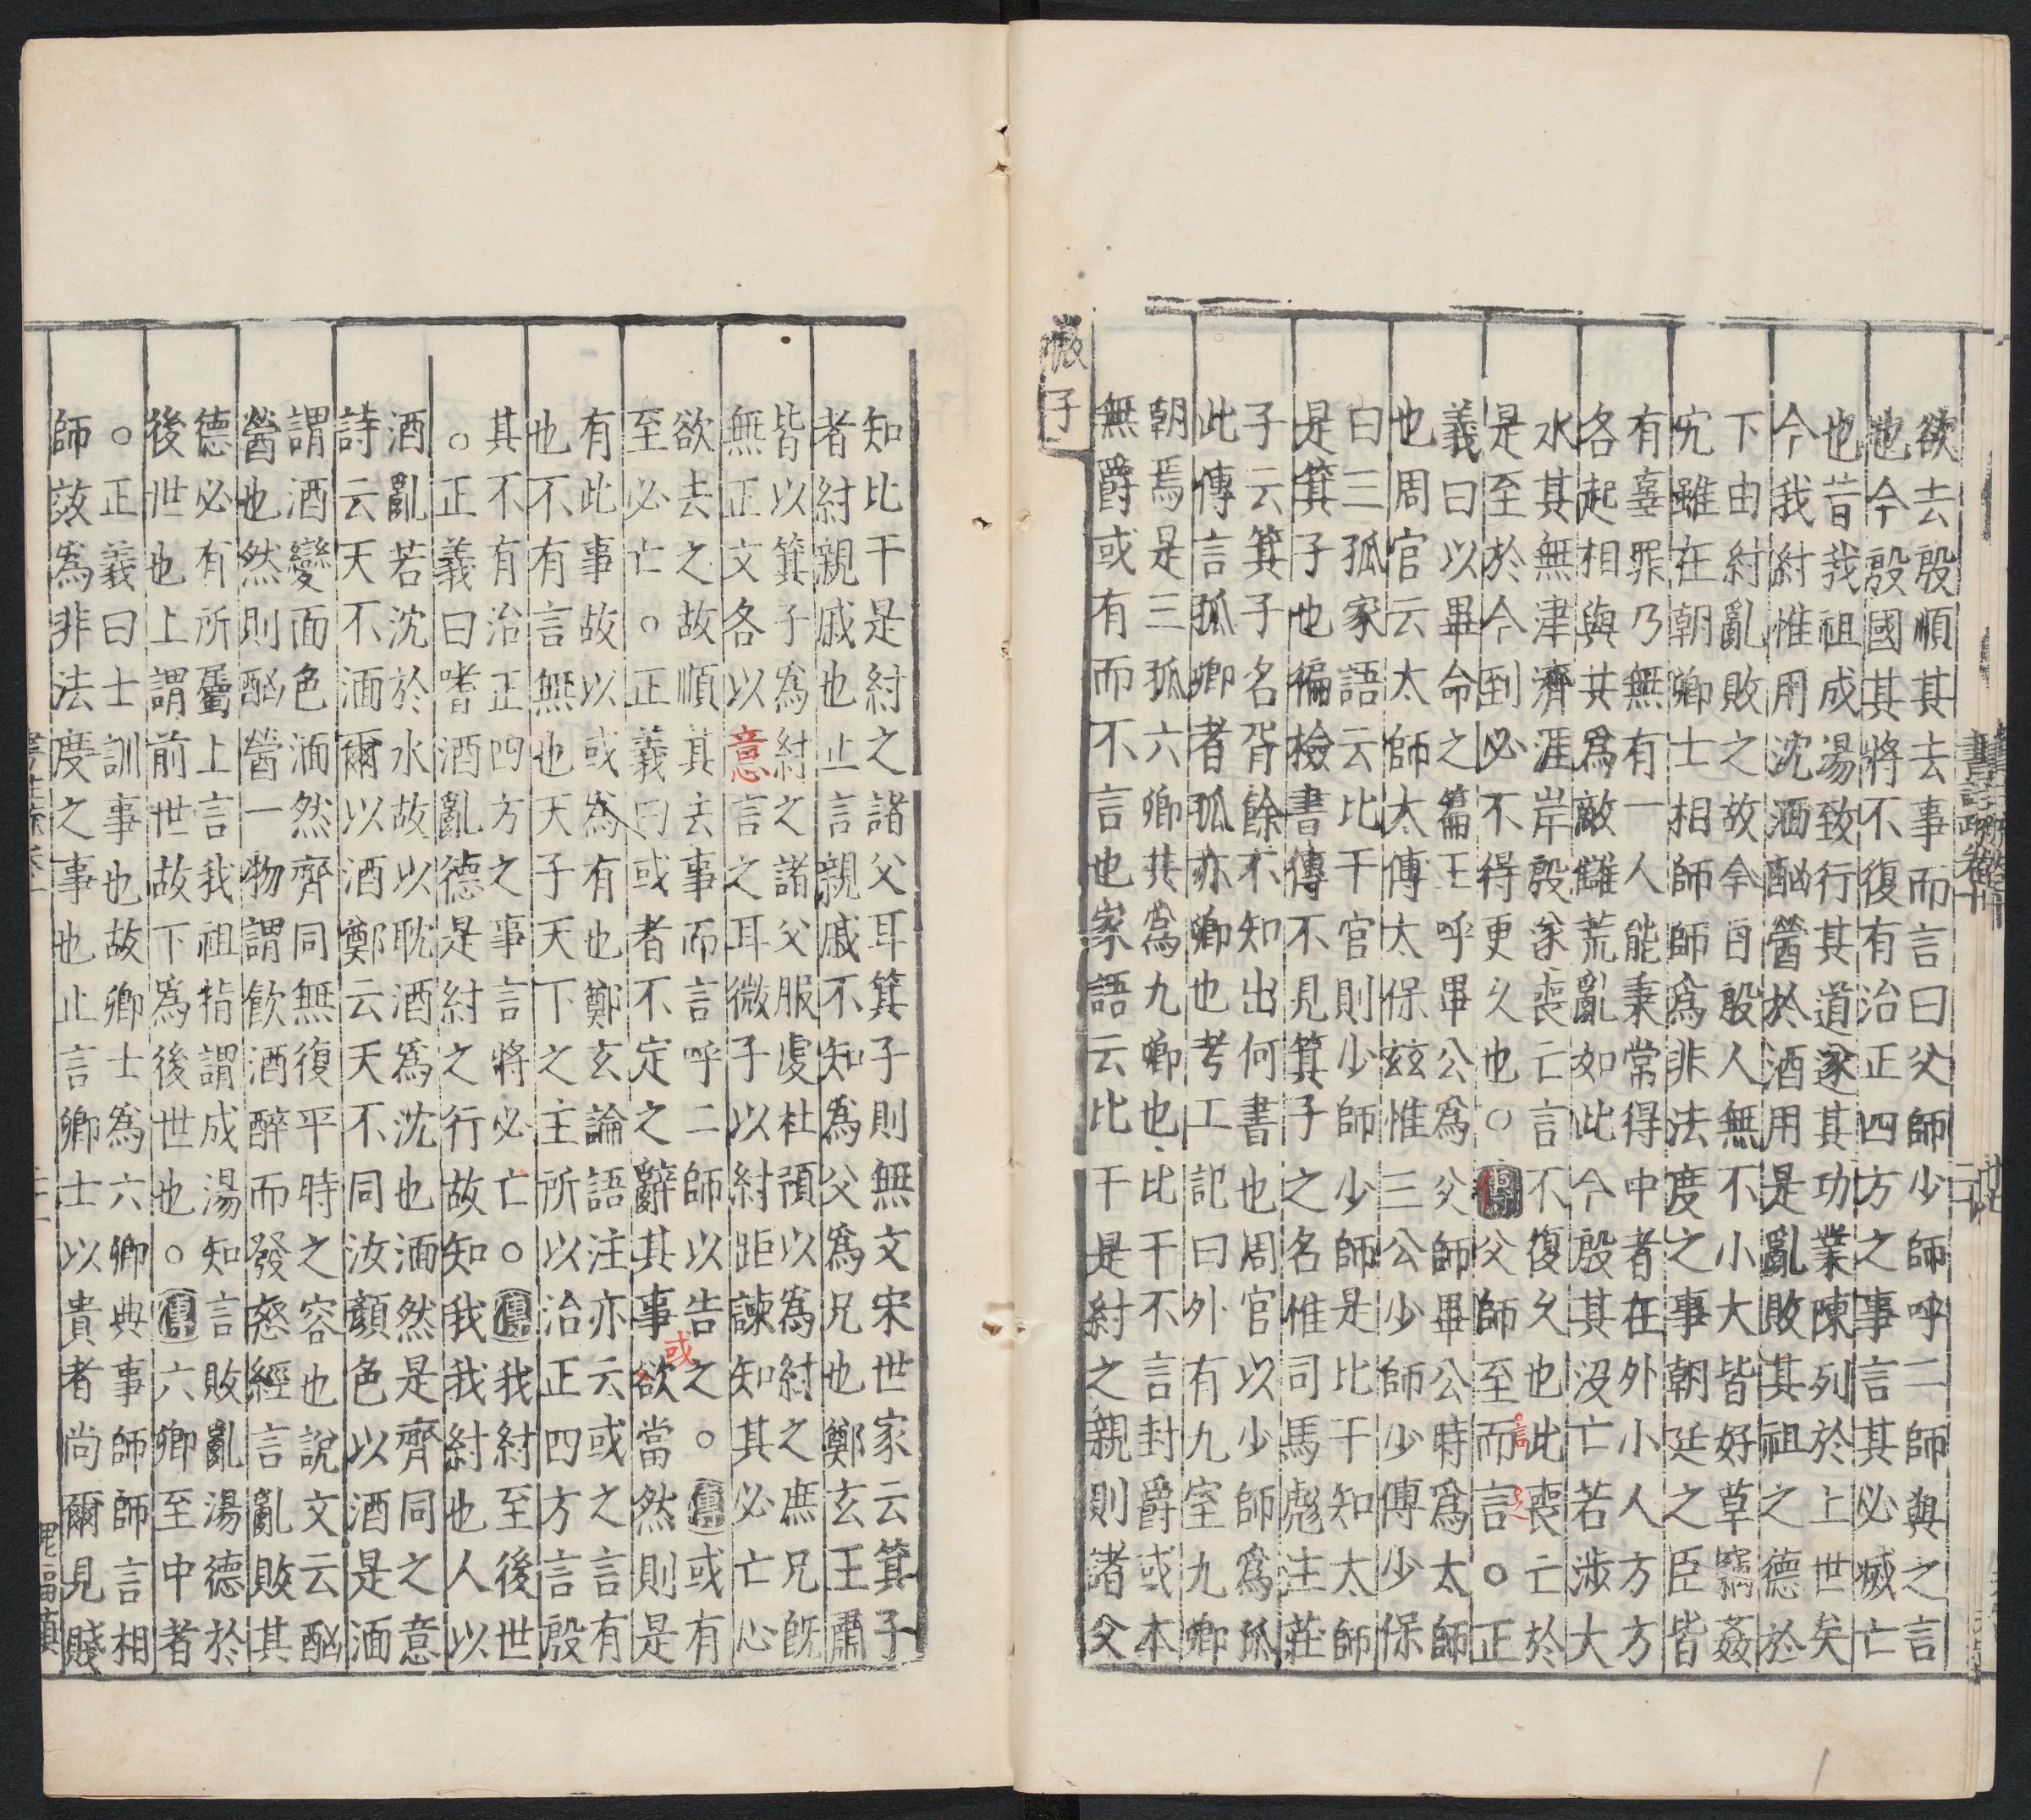 欲去殷順其去事而言曰父師少師呼二師與之言
也今殷國其將不復有治正四方之事言其必滅亡
也昔我祖成湯致行其道遂其功業陳列於上世矣
今我紂惟用沈湎酗醟於酒用是亂敗其祖之德於
下由紂亂敗之故今自殷人無不小大皆好草竊姦
宄雖在朝卿士相師師為非法度之事朝廷之臣皆
有辜罪乃無有一人能秉常得中者在外小人方方
各起相與共為敵讎荒亂如此今殷其沒亡若涉大
水其無津濟涯岸殷遂喪亡言不復久也此喪亡於
是至於今到必不得更久也○傳父師至而言○正
言
之
義曰以畢命之篇王呼畢公為父師畢公時為太師
也周官云太師太傅太保茲惟三公少師少傅少保
曰三孤家語云比干官則少師少師是比干知太師
是箕子也徧檢書傳不見箕子之名惟司馬彪注莊
子云箕子名胥餘不知出何書也周官以少師為孤
此傳言孤卿者孤亦卿也考工記曰外有九室九卿
朝焉是三孤六卿共為九卿也比干不言封爵或本
無爵或有而不言也家語云比干是紂之親則諸父
微子
知比干是紂之諸父耳箕子則無文宋世家云箕子
者紂親戚也止言親戚不知為父為兄也鄭玄王肅
皆以箕子為紂之諸父服虔杜預以為紂之庶兄既
無正文各以意言之耳微子以紂距諫知其必亡心
欲去之故順其去事而言呼二師以告之○傳或有
至必亡○正義曰或者不定之辭其事欲當然則是
或
有此事故以或為有也鄭玄論語注亦云或之言有
也不有言無也天子天下之主所以治正四方言殷
其不有治正四方之事言將必亡○傳我紂至後世
○正義曰嗜酒亂德是紂之行故知我我紂也人以
酒亂若沈於水故以耽酒為沈也湎然是齊同之意
詩云天不湎爾以酒鄭云天不同汝顏色以酒是湎
謂酒變面色湎然齊同無復平時之容也說文云酗
醟也然則酗醟一物謂飲酒醉而發怒經言亂敗其
德必有所屬上言我祖指謂成湯知言敗亂湯德於
後世也上謂前世故下為後世也○傳六卿至中者
○正義曰士訓事也故卿士為六卿典事師師言相
師效為非法度之事也止言卿士以貴者尚爾見賤